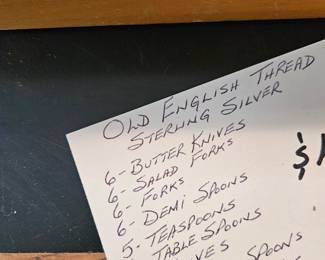 OLD ENGLISH THREAD
STERLING SILVER
6- BUTTER KNIVES
6- SALAD FORKS
6- FORKS
6- DEMI SPOONS
5- TEASPOONS
TABLE SPOONS
SPOONS
$